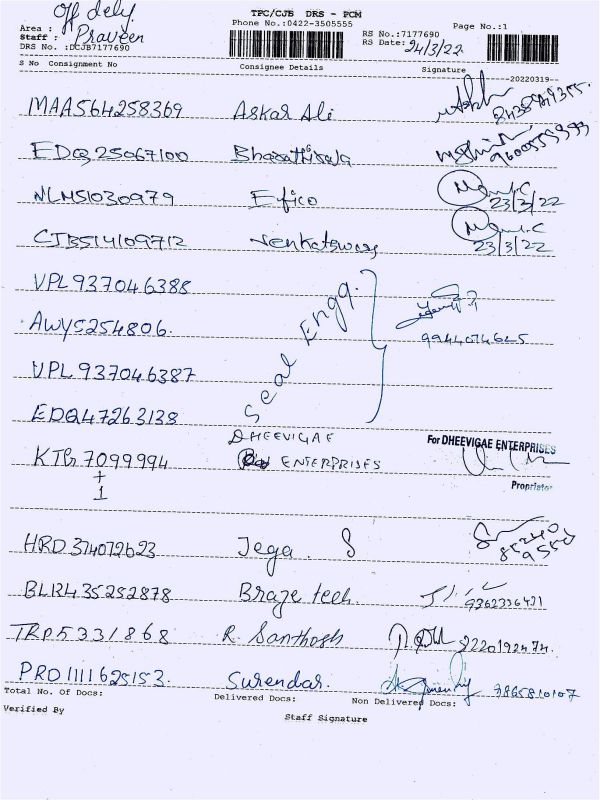 TPC/CJB DRS - PCM
Off dely
Area :
Phone No.:0422-3505555
Page No.:1
Staff : Praveen
RS No.:7177690
DRS No. :DCJB7177690
RS Date: 24/3/22
S No Consignment No Consignee Details Signature
20220319
MAA564258369 Askar Ali
EDQ25067100 Bharathiraja 9600559399
NLMS1030979 Efico 23/3/22
CJB514109712 Venkateswara 23/3/22
VPL937046388
AWY5254806. Seal Engg.
9944074645
VPL937046387
EDQ47263138
DHEEVIGAE
For DHEEVIGAE ENTERPRISES
KTG7099994 ENTERPRISES
+
1
Proprietor
HRD374072623 Jega. S
BLR435252878 Braze tech. 9362336421
TRP5331868 R. Santhosh 8220192474.
PRO1111625153. Surendar. 9865810107
Total No. Of Docs: Delivered Docs: Non Delivered Docs:
Verified By
Staff Signature